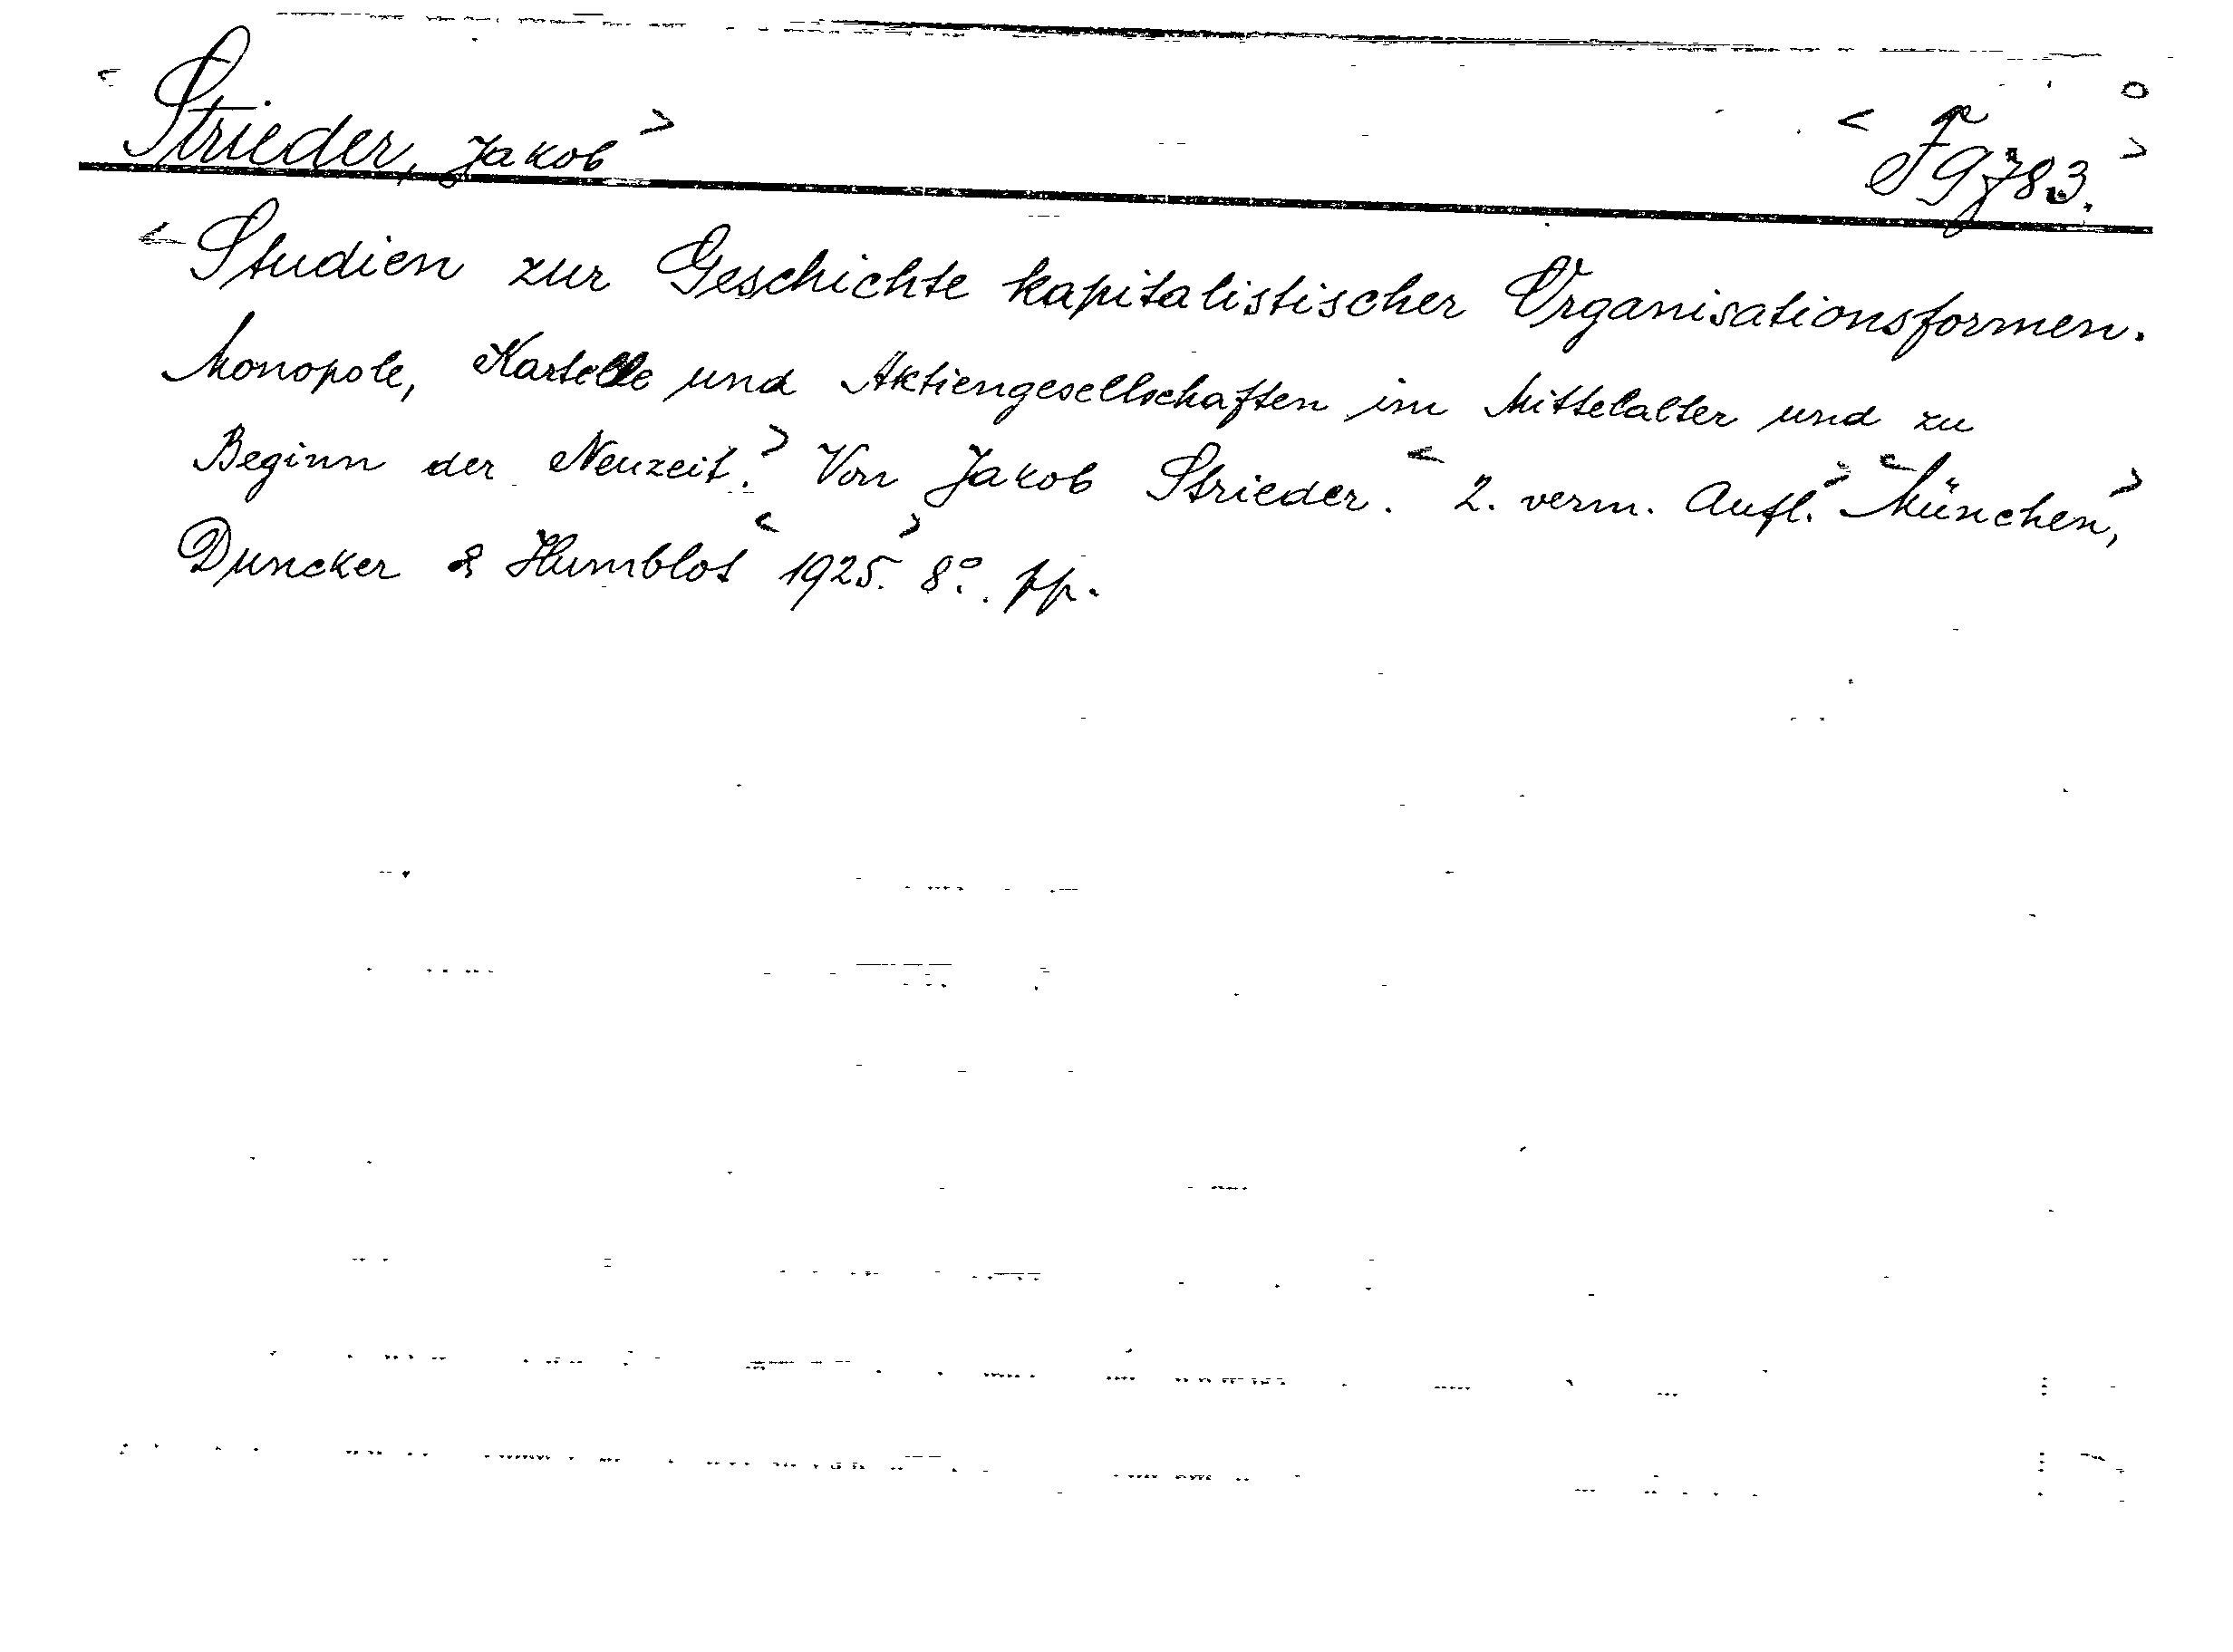 <Strieder, Jakob> <F 9783.>
<Studien zur Geschichte kapitalistischer Organisationsformen.
Monopole, Kartelle und Aktiengesellschaften im Mittelalter und zu
Beginn der Neuzeit.> Von Jakob Strieder. <2. verm. Aufl.> <München,>
Duncker & Humblot <1925.> 8°. pp.